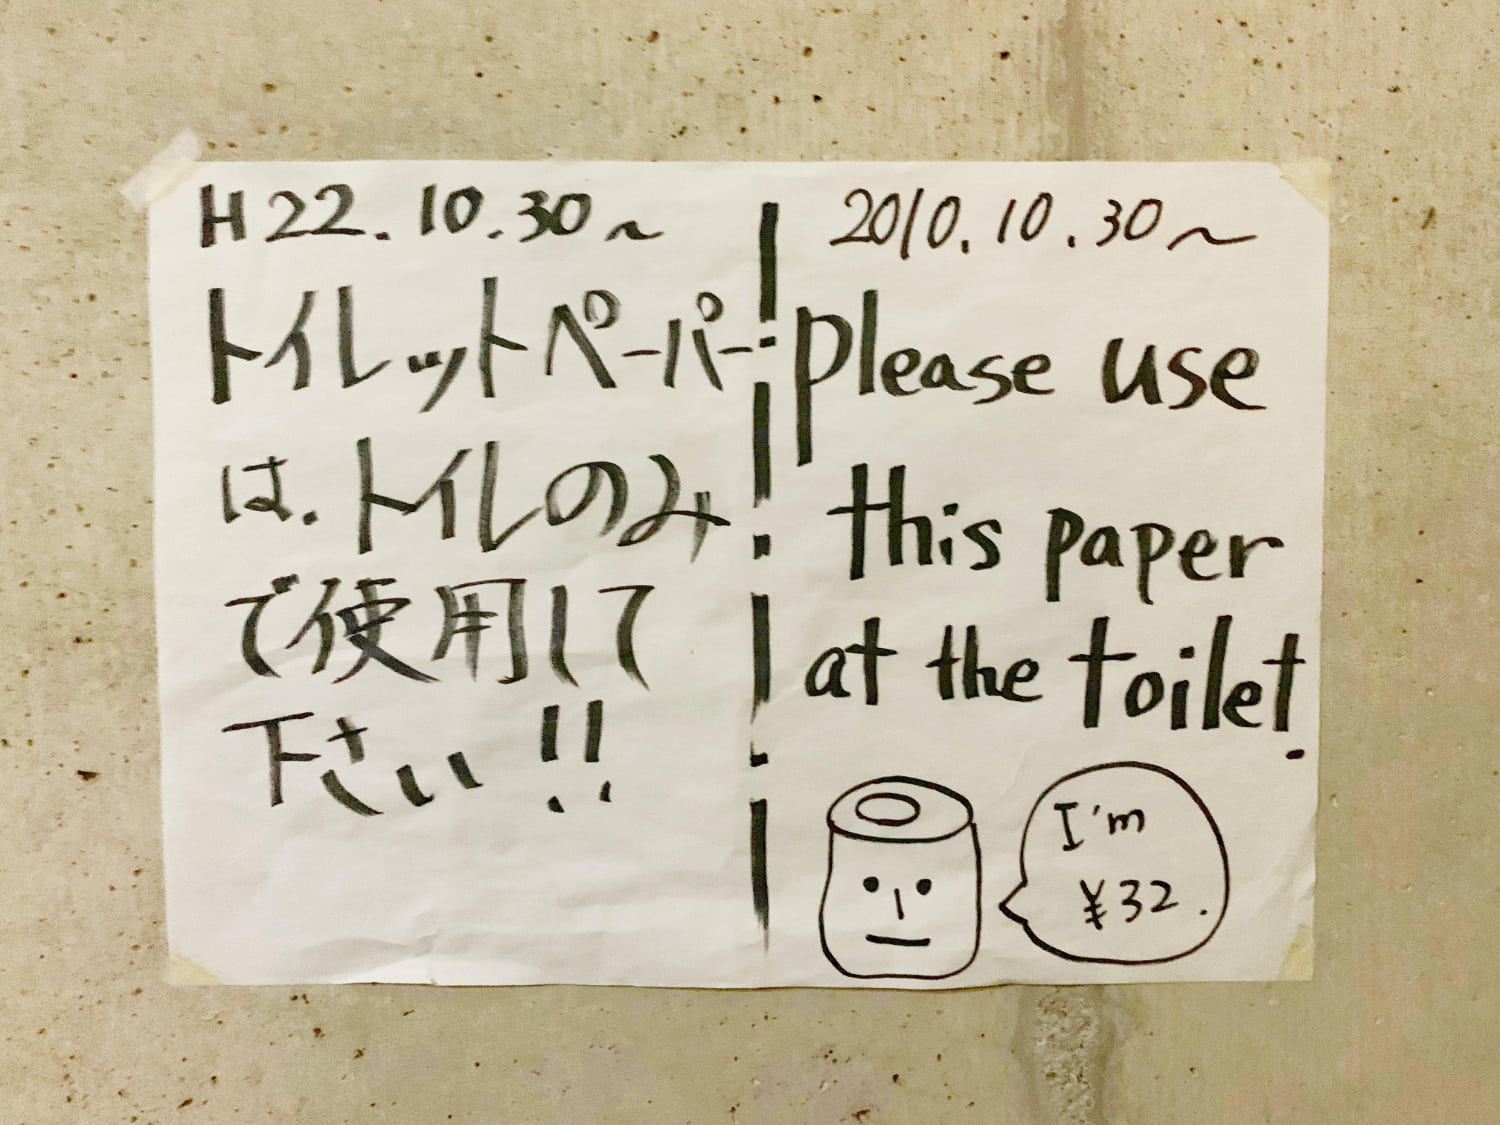 H22.10.30～
トイレットペーパー
は.トイレのみ
で使用して
下さい!!
2010.10.30～
please use
this paper
at the toilet.
I'm
¥32.